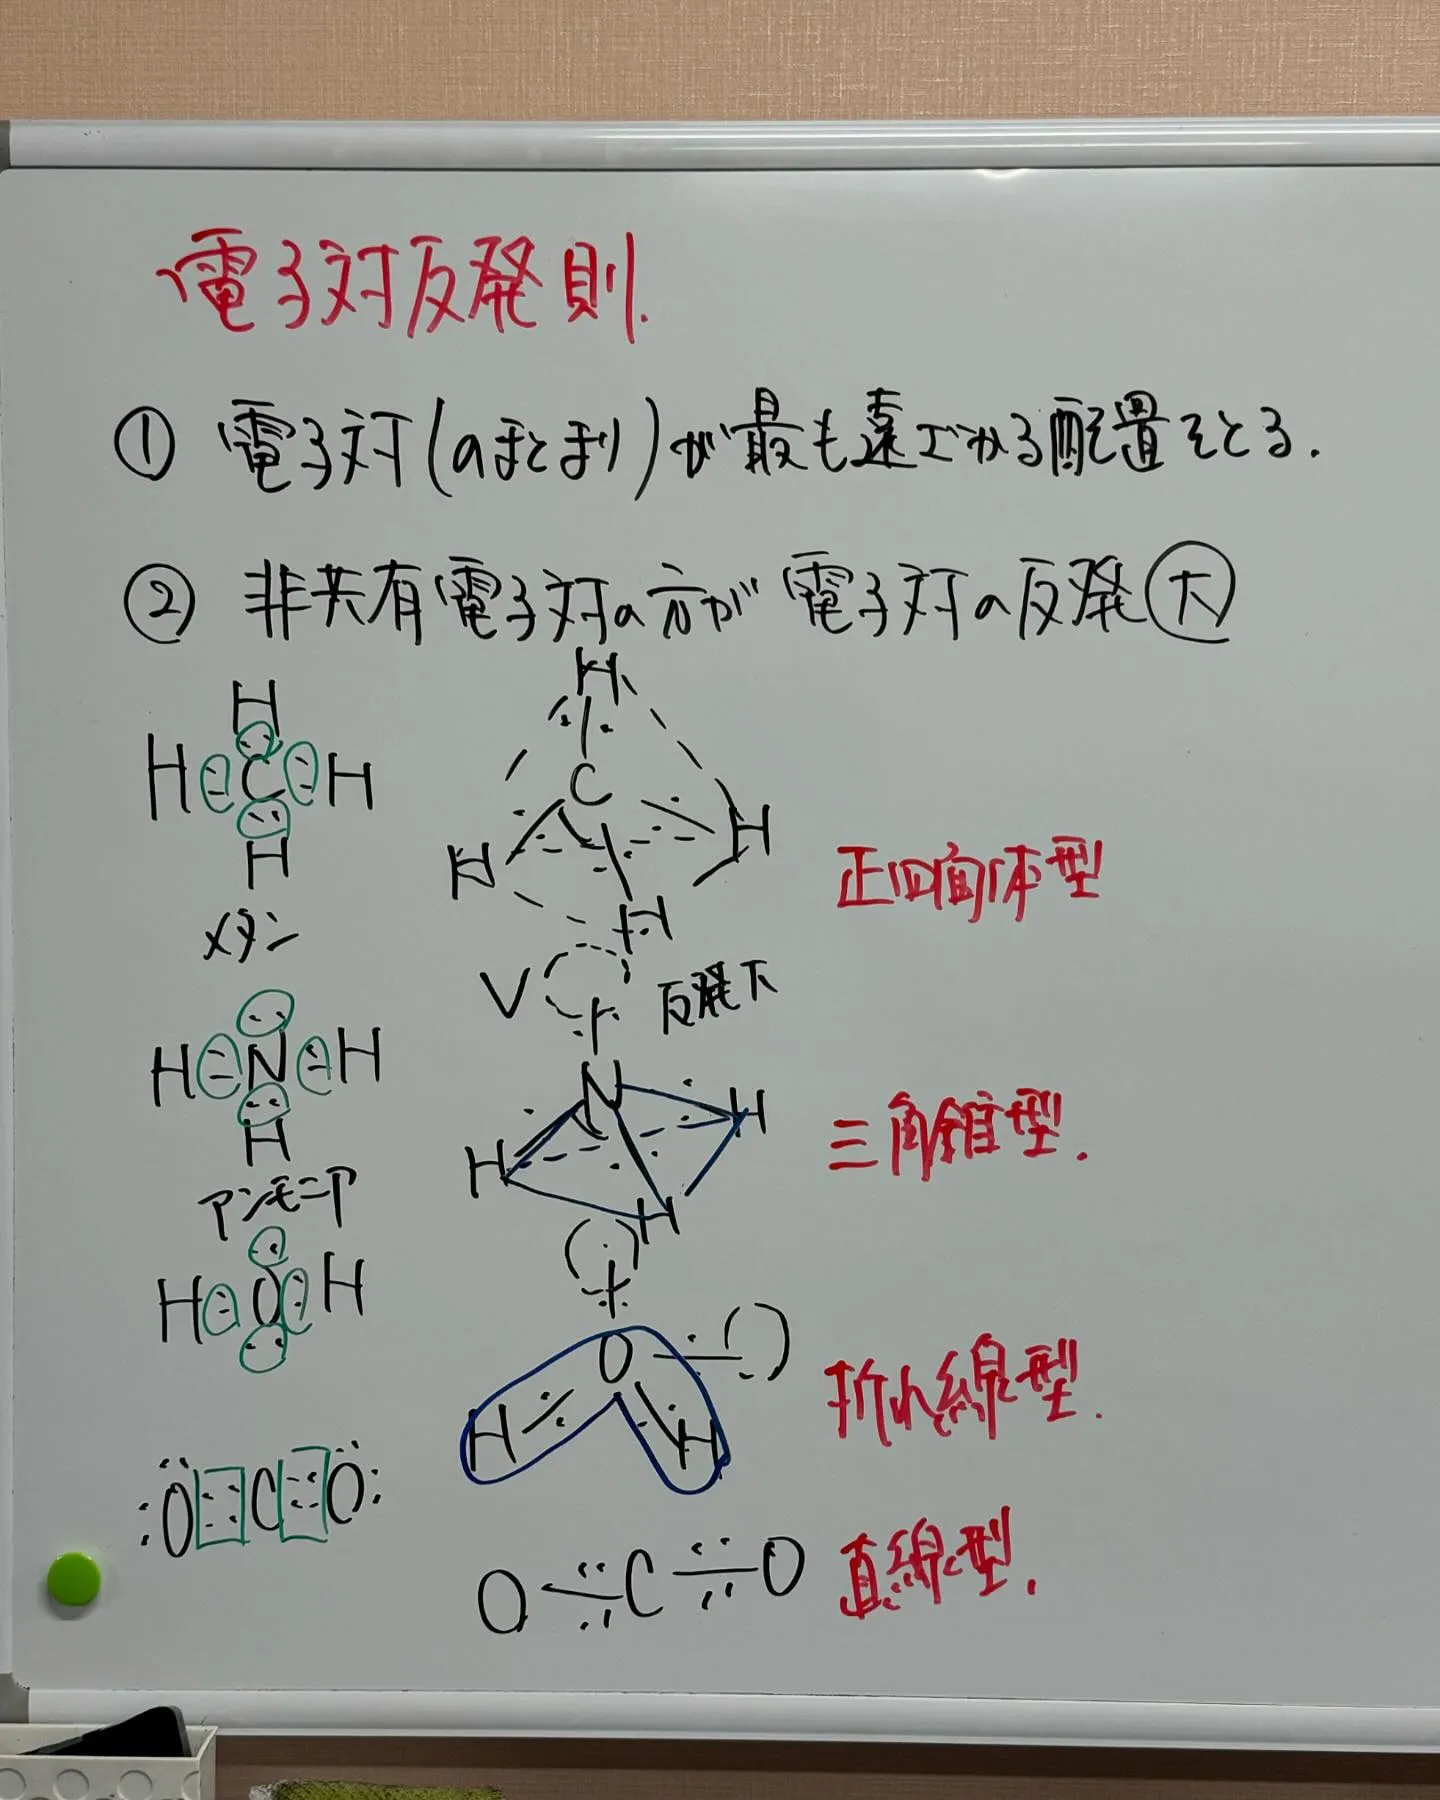 電子対反発則.
① 電子対(のまとまり)が最も遠ざかる配置をとる.
② 非共有電子対の方が電子対の反発大
H
H C H
H
メタン
H
C
H H
H
正四面体型
H N H
H
アンモニア
V 反発大
N
H H
H
三角錐型.
H O H
O
H H
折れ線型.
O C O
O C O
直線型.